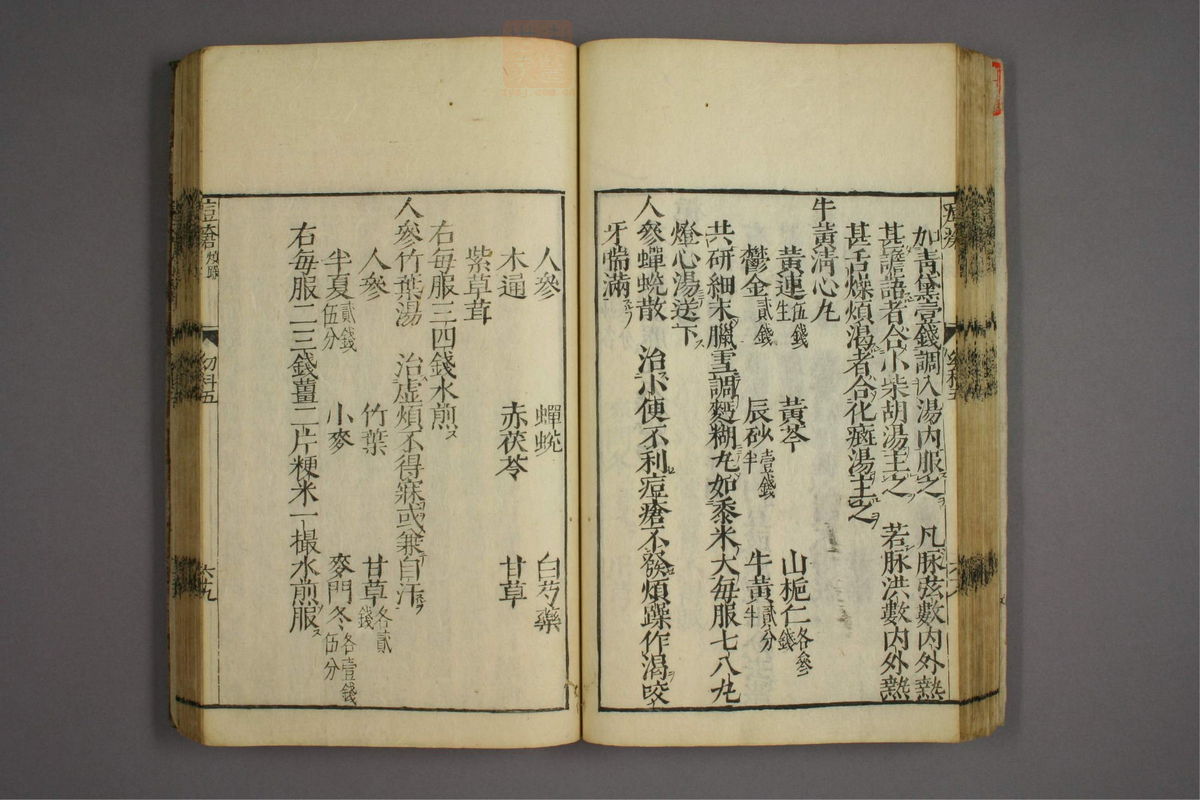 加青黛壹錢調入湯内服之　凡脉弦數内外熱
甚譫語者合小柴胡湯主之　若脉洪數内外熱
甚舌燥煩渴者合化癍湯主之
牛黄清心丸
黄連伍錢生　黄芩　山梔仁各參錢
鬱金貳錢　辰砂壹錢半　牛黄貳分半
共研細末臘雪調麪糊丸如黍米大毎服七八丸
燈心湯送下
人參蟬蛻散　治小便不利痘瘡不發煩躁作渴咬
牙喘滿
人參　蟬蛻　白芍藥
木通　赤茯苓　甘草
紫草茸
右毎服三四錢水煎
人參竹葉湯　治虚煩不得寐或兼自汗
人參　竹葉　甘草各貳錢
半夏貳錢伍分　小麥　麥門冬各壹錢伍分
右毎服二三錢薑二片粳米一撮水煎服
痘瘡
幼科五
六九